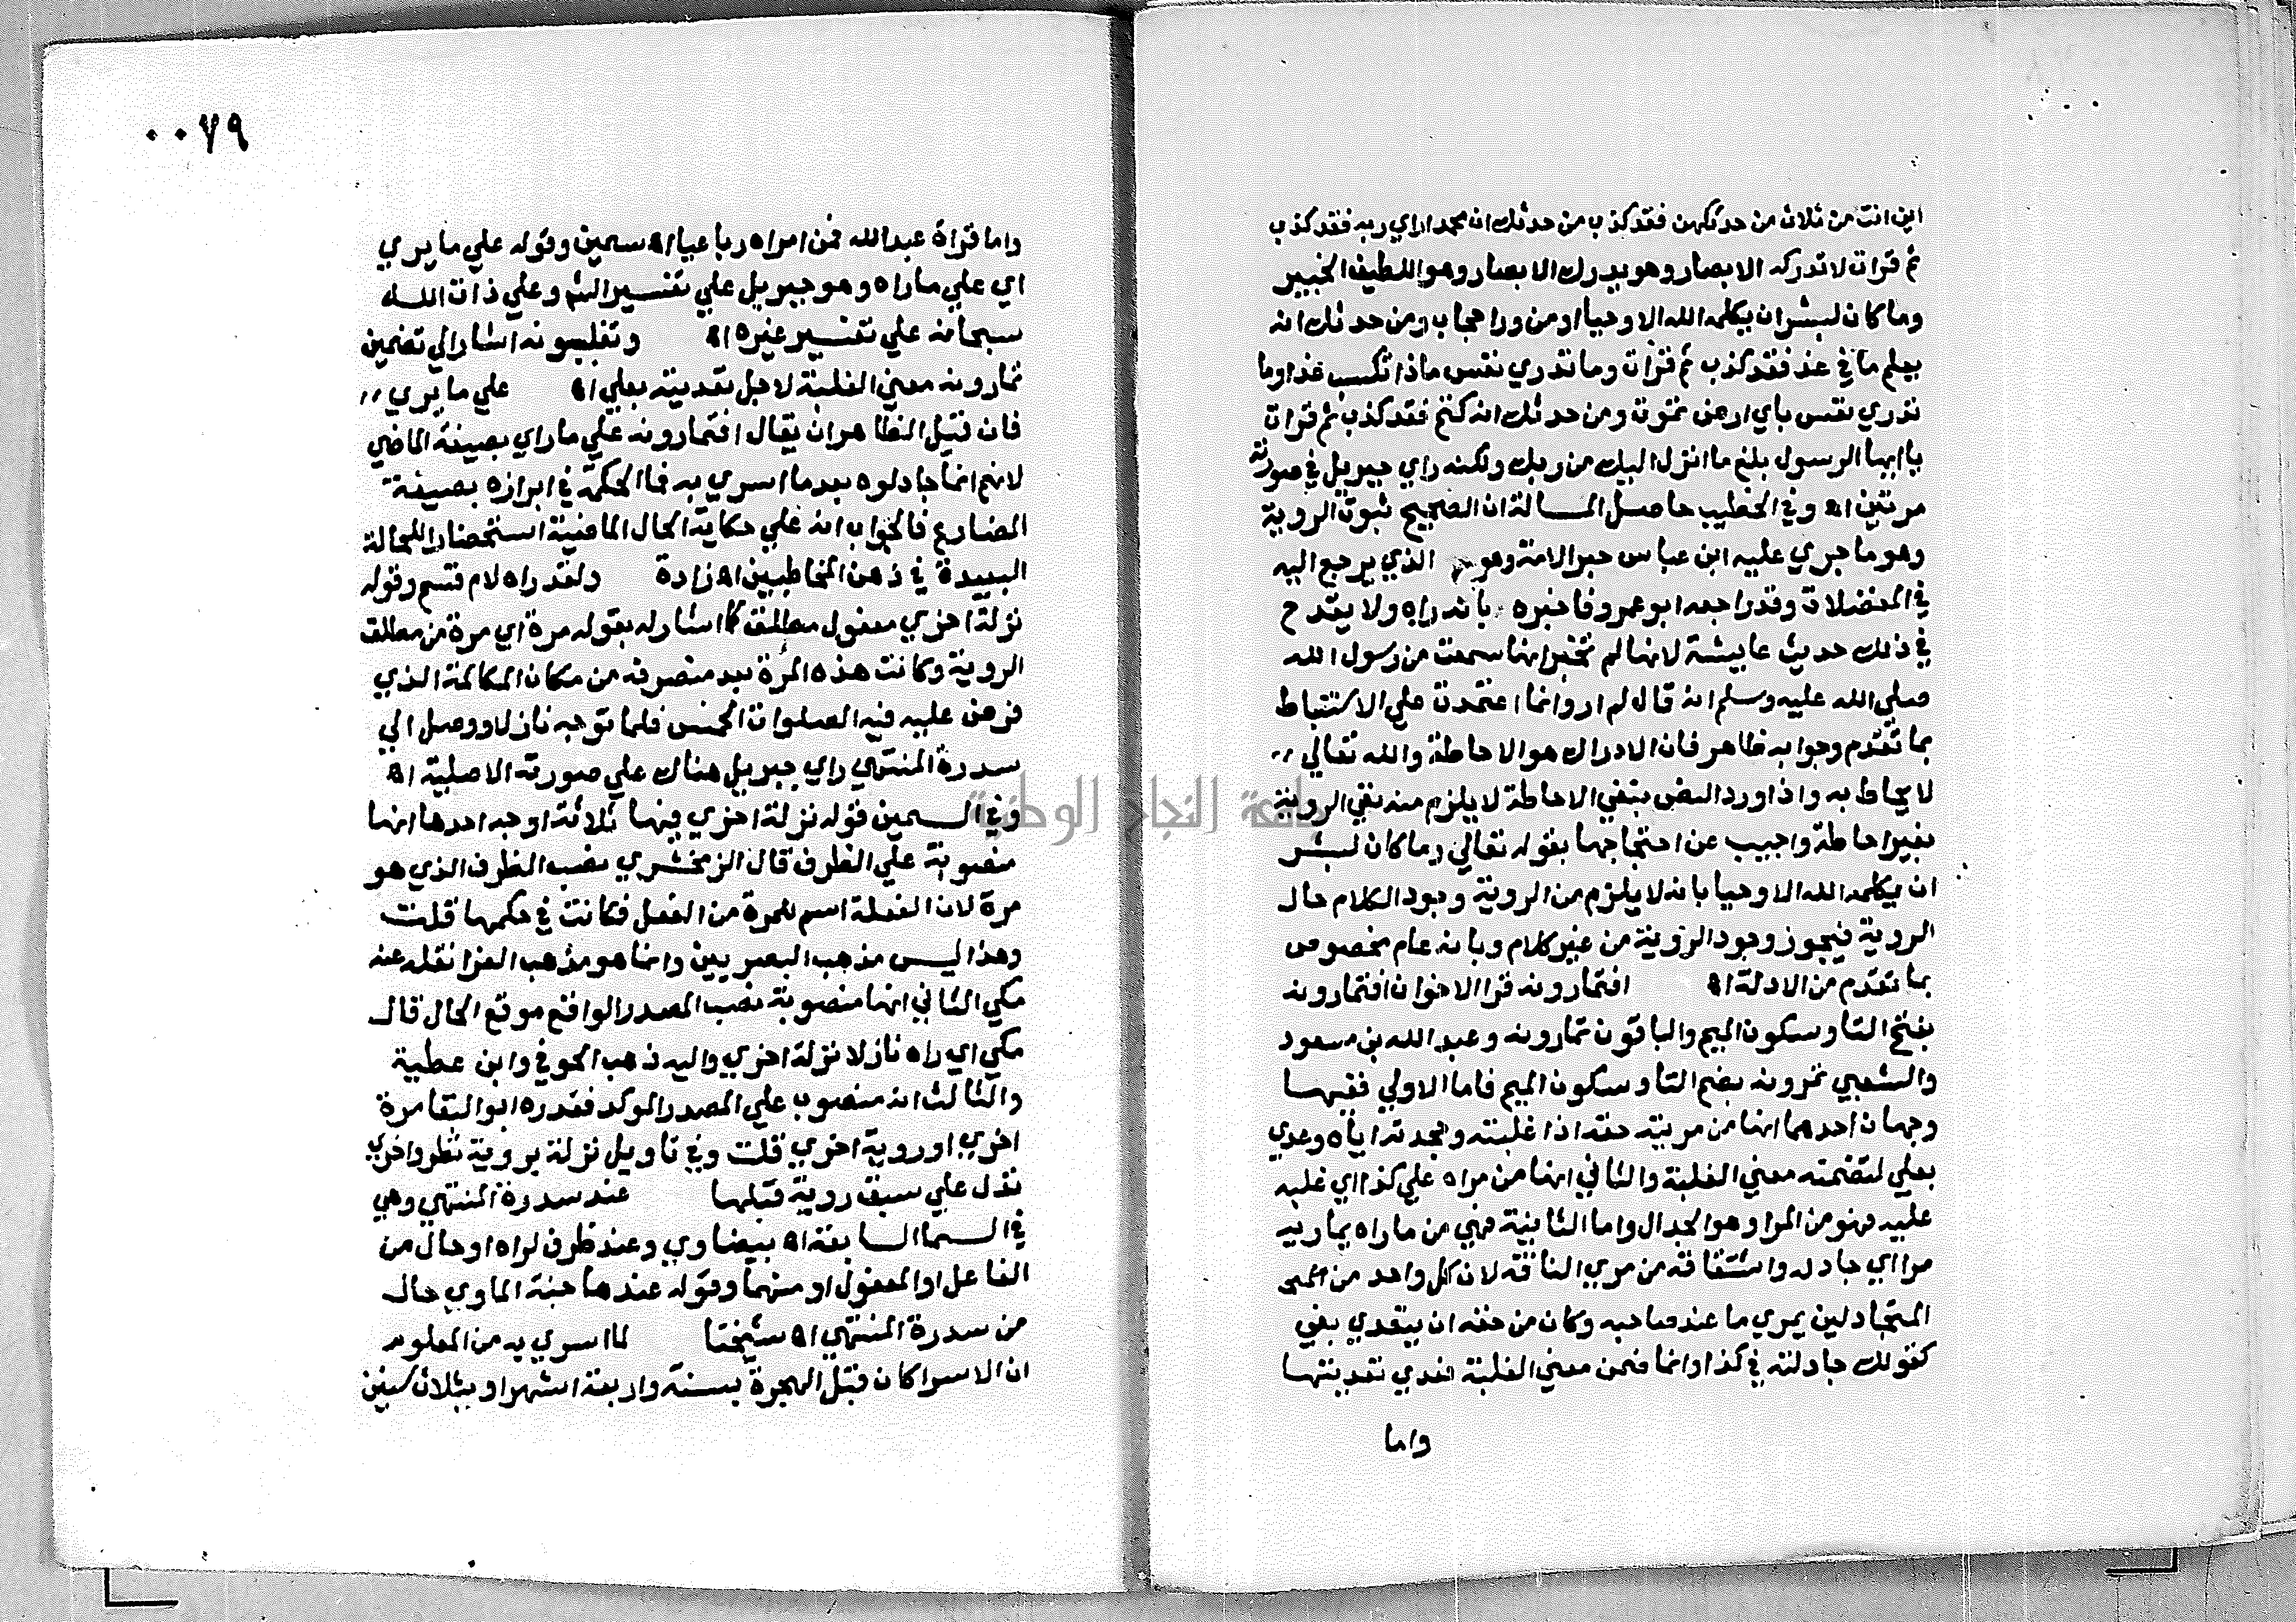 اين انت من ثلاث من حدثكهن فقد كذب من حدثك ان محمدا راي ربه فقد كذب
ثم قرات لا تدركه الابصار وهو يدرك الابصار وهو اللطيف الخبير
وما كان لبشر ان يكلمه الله الا وحيا او من ورا حجاب ومن حدثك انه
يعلم ما في غد فقد كذب ثم قرات وما تدري نفس ماذا تكسب غدا وما
تدري نفس باي ارض تموت ومن حدثك انه كتم فقد كذب ثم قرات
يا ايها الرسول بلغ ما انزل اليك من ربك ولكنه راي جبريل في صورته
مرتين اه وفي الخطيب حاصل المسالة ان الصحيح ثبوت الروية
وهو ما جري عليه ابن عباس حبر الامة وهو الذي يرجع اليه
في المعضلات وقد راجعه ابو عمر وفاخبره بانه راه ولا يقدح
في ذلك حديث عايشة لانها لم تخبر انها سمعت من رسول الله
صلي الله عليه وسلم انه قال لم ار وانما اعتمدت علي الاستنباط
بما تقدم وجوابه ظاهر فان الادراك هو الاحاطة والله تعالي
لا يحاط به واذا ورد النص بنفي الاحاطة لا يلزم منه نفي الروية
بغير احاطة واجيب عن احتجاجها بقوله تعالي وما كان لبشر
ان يكلمه الله الا وحيا بانه لا يلزم من الروية وجود الكلام حال
الروية فيجوز وجود الروية من غير كلام وبانه عام مخصوص
بما تقدم من الادلة اه افتمارونه قرا الاخوان افتمارونه
بفتح التا وسكون الميم والباقون تمارونه وعبد الله بن مسعود
والشعبي تمرونه بضم التا وسكون الميم فاما الاولي ففيها
وجهان احدهما انها من مريته حقه اذا غلبته وجحدته اياه وعدي
بعلي لتضمنه معني الغلبة والثاني انها من مراه علي كذا اي غلبه
عليه فهو من المرا وهو الجدال واما الثانية فهي من ماراه يماريه
مرا اي جادله واشتقاقه من مري الناقة لان كل واحد من
المتجادلين يمري ما عند صاحبه وكان من حقه ان يتعدي بفي
كقولك جادلته في كذا وانما ضمن معني الغلبة فعدي تعديتها
واما
٠٠٧٩
واما قراة عبد الله فمن امراه رباعيا اه سمين وقوله علي ما يري
اي علي ماراه وهو جبريل علي تفسير الشم وعلي ذات الله
سبحانه علي تفسير غيره اه وتغلبونه اشار الي تضمين
تمارونه معني الغلبة لاجل تعديته بعلي اه علي ما يري
فان قيل الظاهر ان يقال افتمارونه علي ماراي بصيغة الماضي
لانهم انما جادلوه بعد ما اسري به فما الحكمة في ابرازه بصيغة
المضارع فالجواب انه علي حكاية الحال الماضية استحضارا للحالة
البعيدة في ذهن المخاطبين اه زادة ولقد راه لام قسم وقوله
نزلة اخري مفعول مطلق كما اشار له بقوله مرة اي مرة من مطلق
الروية وكانت هذه المرة بعد منصرفه من مكان المكالمة الذي
فرض عليه فيه الصلوات الخمس فلما توجه نازلا ووصل الي
سدرة المنتهي راي جبريل هناك علي صورته الاصلية اه
وفي السمين قوله نزلة اخري فيها ثلاثة اوجه احدها انها
منصوبة علي الظرف قال الزمخشري نصب الظرف الذي هو
مرة لان الفعلة اسم للمرة من الفعل فكانت في حكمها قلت
وهذا ليس مذهب البصريين وانما هو مذهب الفرا نقله عنه
مكي الثاني انها منصوبة نصب المصدر الواقع موقع الحال قال
مكي اي راه نازلا نزلة اخري واليه ذهب الحوفي وابن عطية
والثالث انه منصوب علي المصدر الموكد فقدره ابو البقا مرة
اخري او روية اخري قلت وفي تاويل نزلة بروية نظر واخري
تدل علي سبق روية قبلها عند سدرة المنتهي وهي
في السما السابعة اه بيضاوي وعند ظرف لراه او حال من
الفاعل او المفعول او منهما وقوله عندها جنة الماوي حال
من سدرة المنتهي اه شيخنا لما اسري به من المعلوم
ان الاسرا كان قبل الهجرة بسنة واربعة اشهر او بثلاث سنين
جامعة النجاح الوطنية